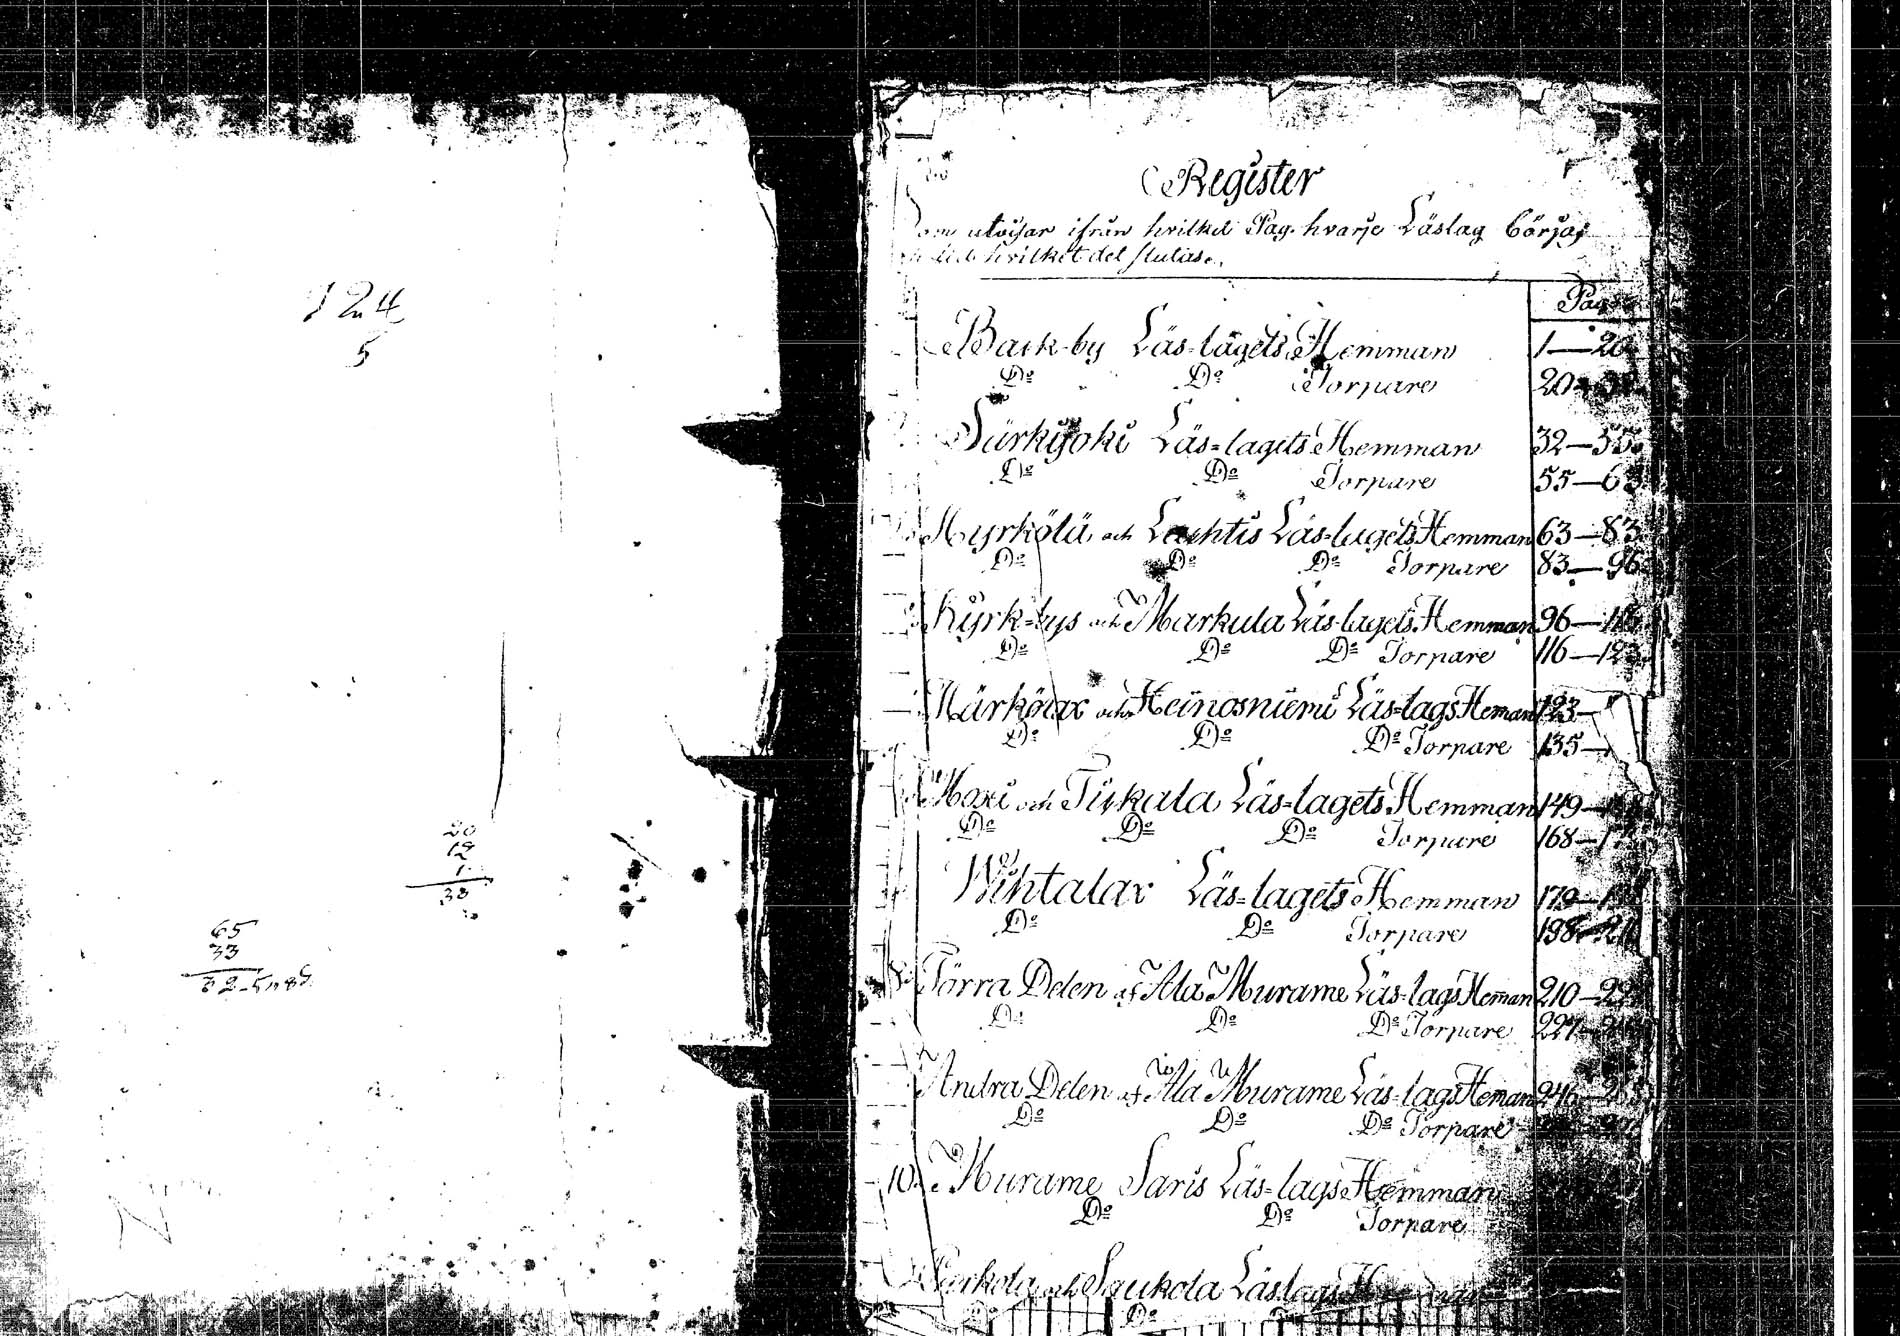 124
5
20
12
1
33
65
33
Register
utvisar ifrån hvilken Pag. hvarje Läslag börjas
hvilket det slutas.
Pag.
Back-by Läs-lagets Hemman 1—20
Do Do Torpare 20—
Särkijoki Läs-lagets Hemman 32—55
Do Do Torpare 55—63
Hyrkölä och Lachtis Läs-lagets Hemman 63—83
Do Do Do Torpare 83—96
Kyrk-bys och Markula Läs-lagets Hemman 96—116
Do Do Do Torpare 116—123
och Heinosniemi Läs-lags Heman 123—
Do Do Do Torpare 135—
och Tirkala Läs-lagets Hemman 149—
Do Do Do Torpare 168—
Wihtalax Läs-lagets Hemman 179—
Do Do Torpare 198—210
Förra Delen af Ala Murame Läs-lags Heman 210—
Do Do Do Torpare 227—
Andra Delen af Ala Murame Läs-lags Heman 246—
Do Do Do Torpare
10. Murame Saris Läs-lags Hemman
Do Do Torpare
och Saukola Läslags Hemman
Do Do